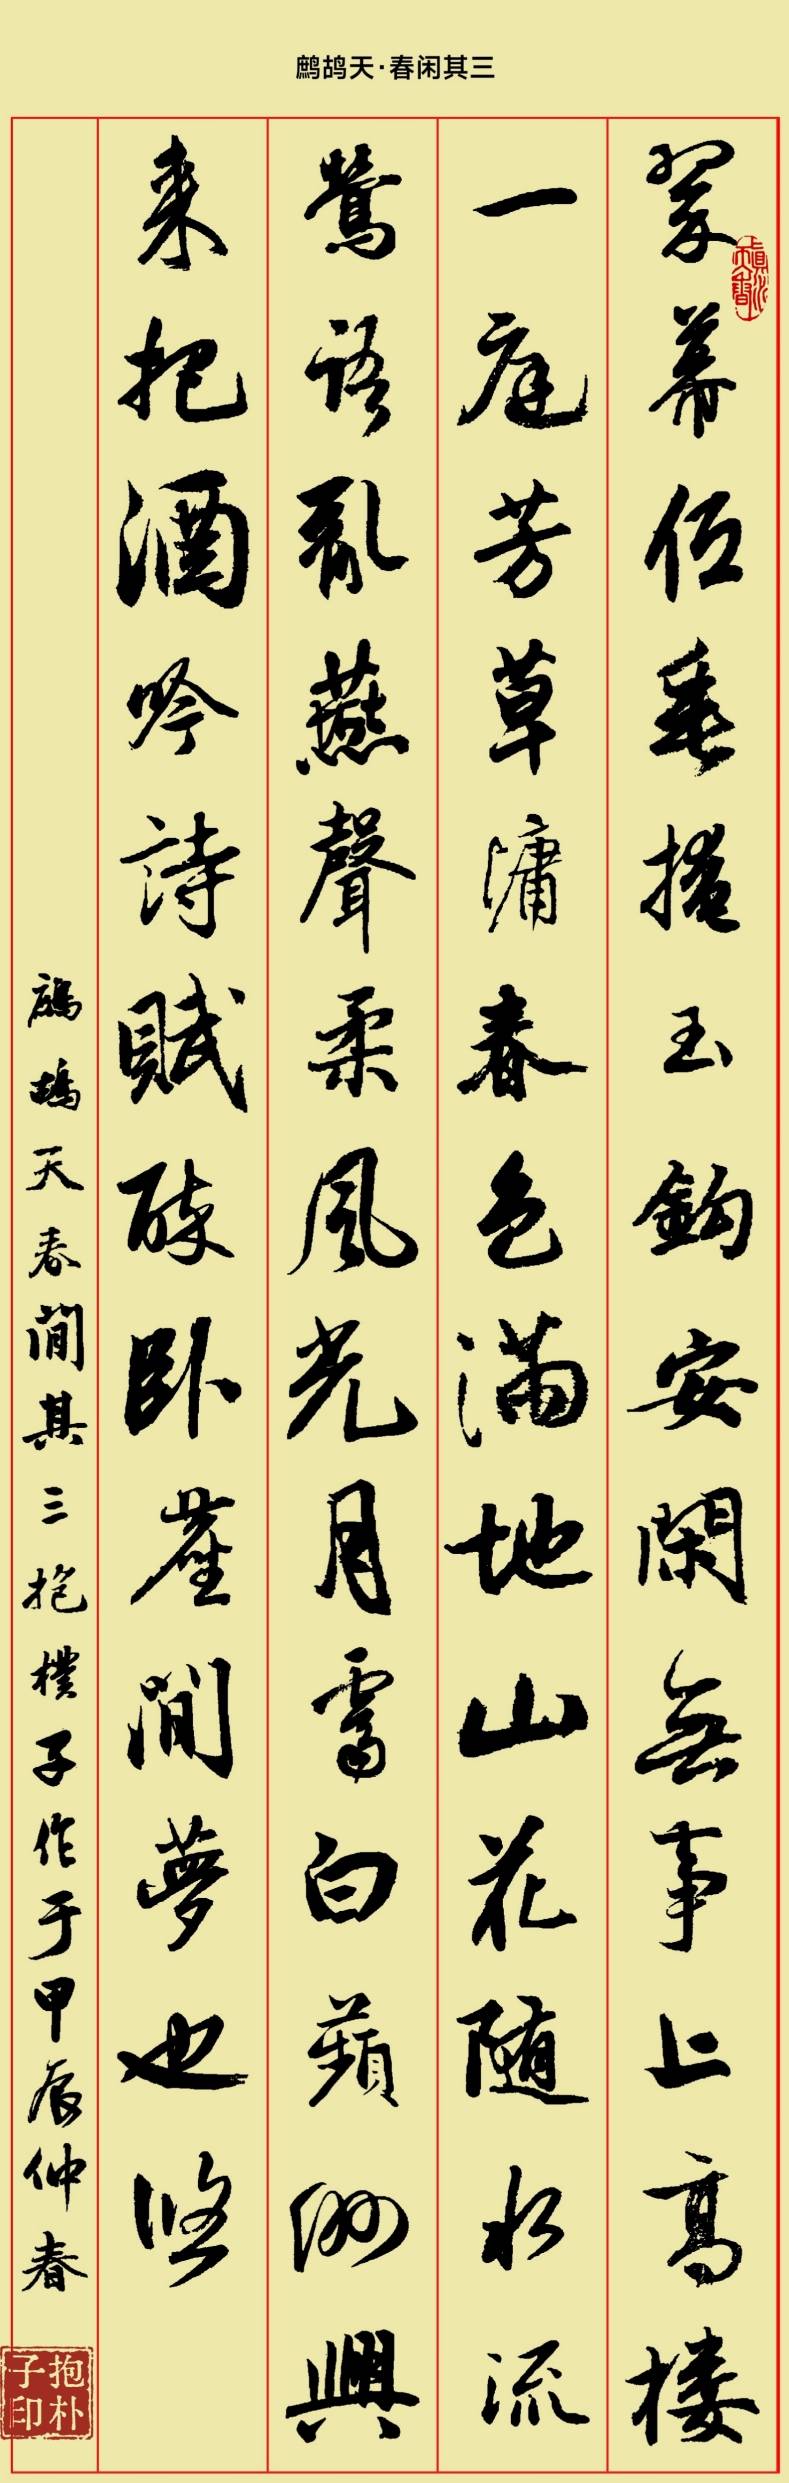 鹧鸪天·春闲其三
翠幕低垂掩玉鈎安閑無事上高楼
一庭芳草慵春色滿地山花随水流
鶯語亂燕聲柔風光月霽白蘋洲興
来把酒吟詩賦醉卧崖間夢也悠
鷓鴣天春間其三抱樸子作于甲辰仲春
抱朴子印